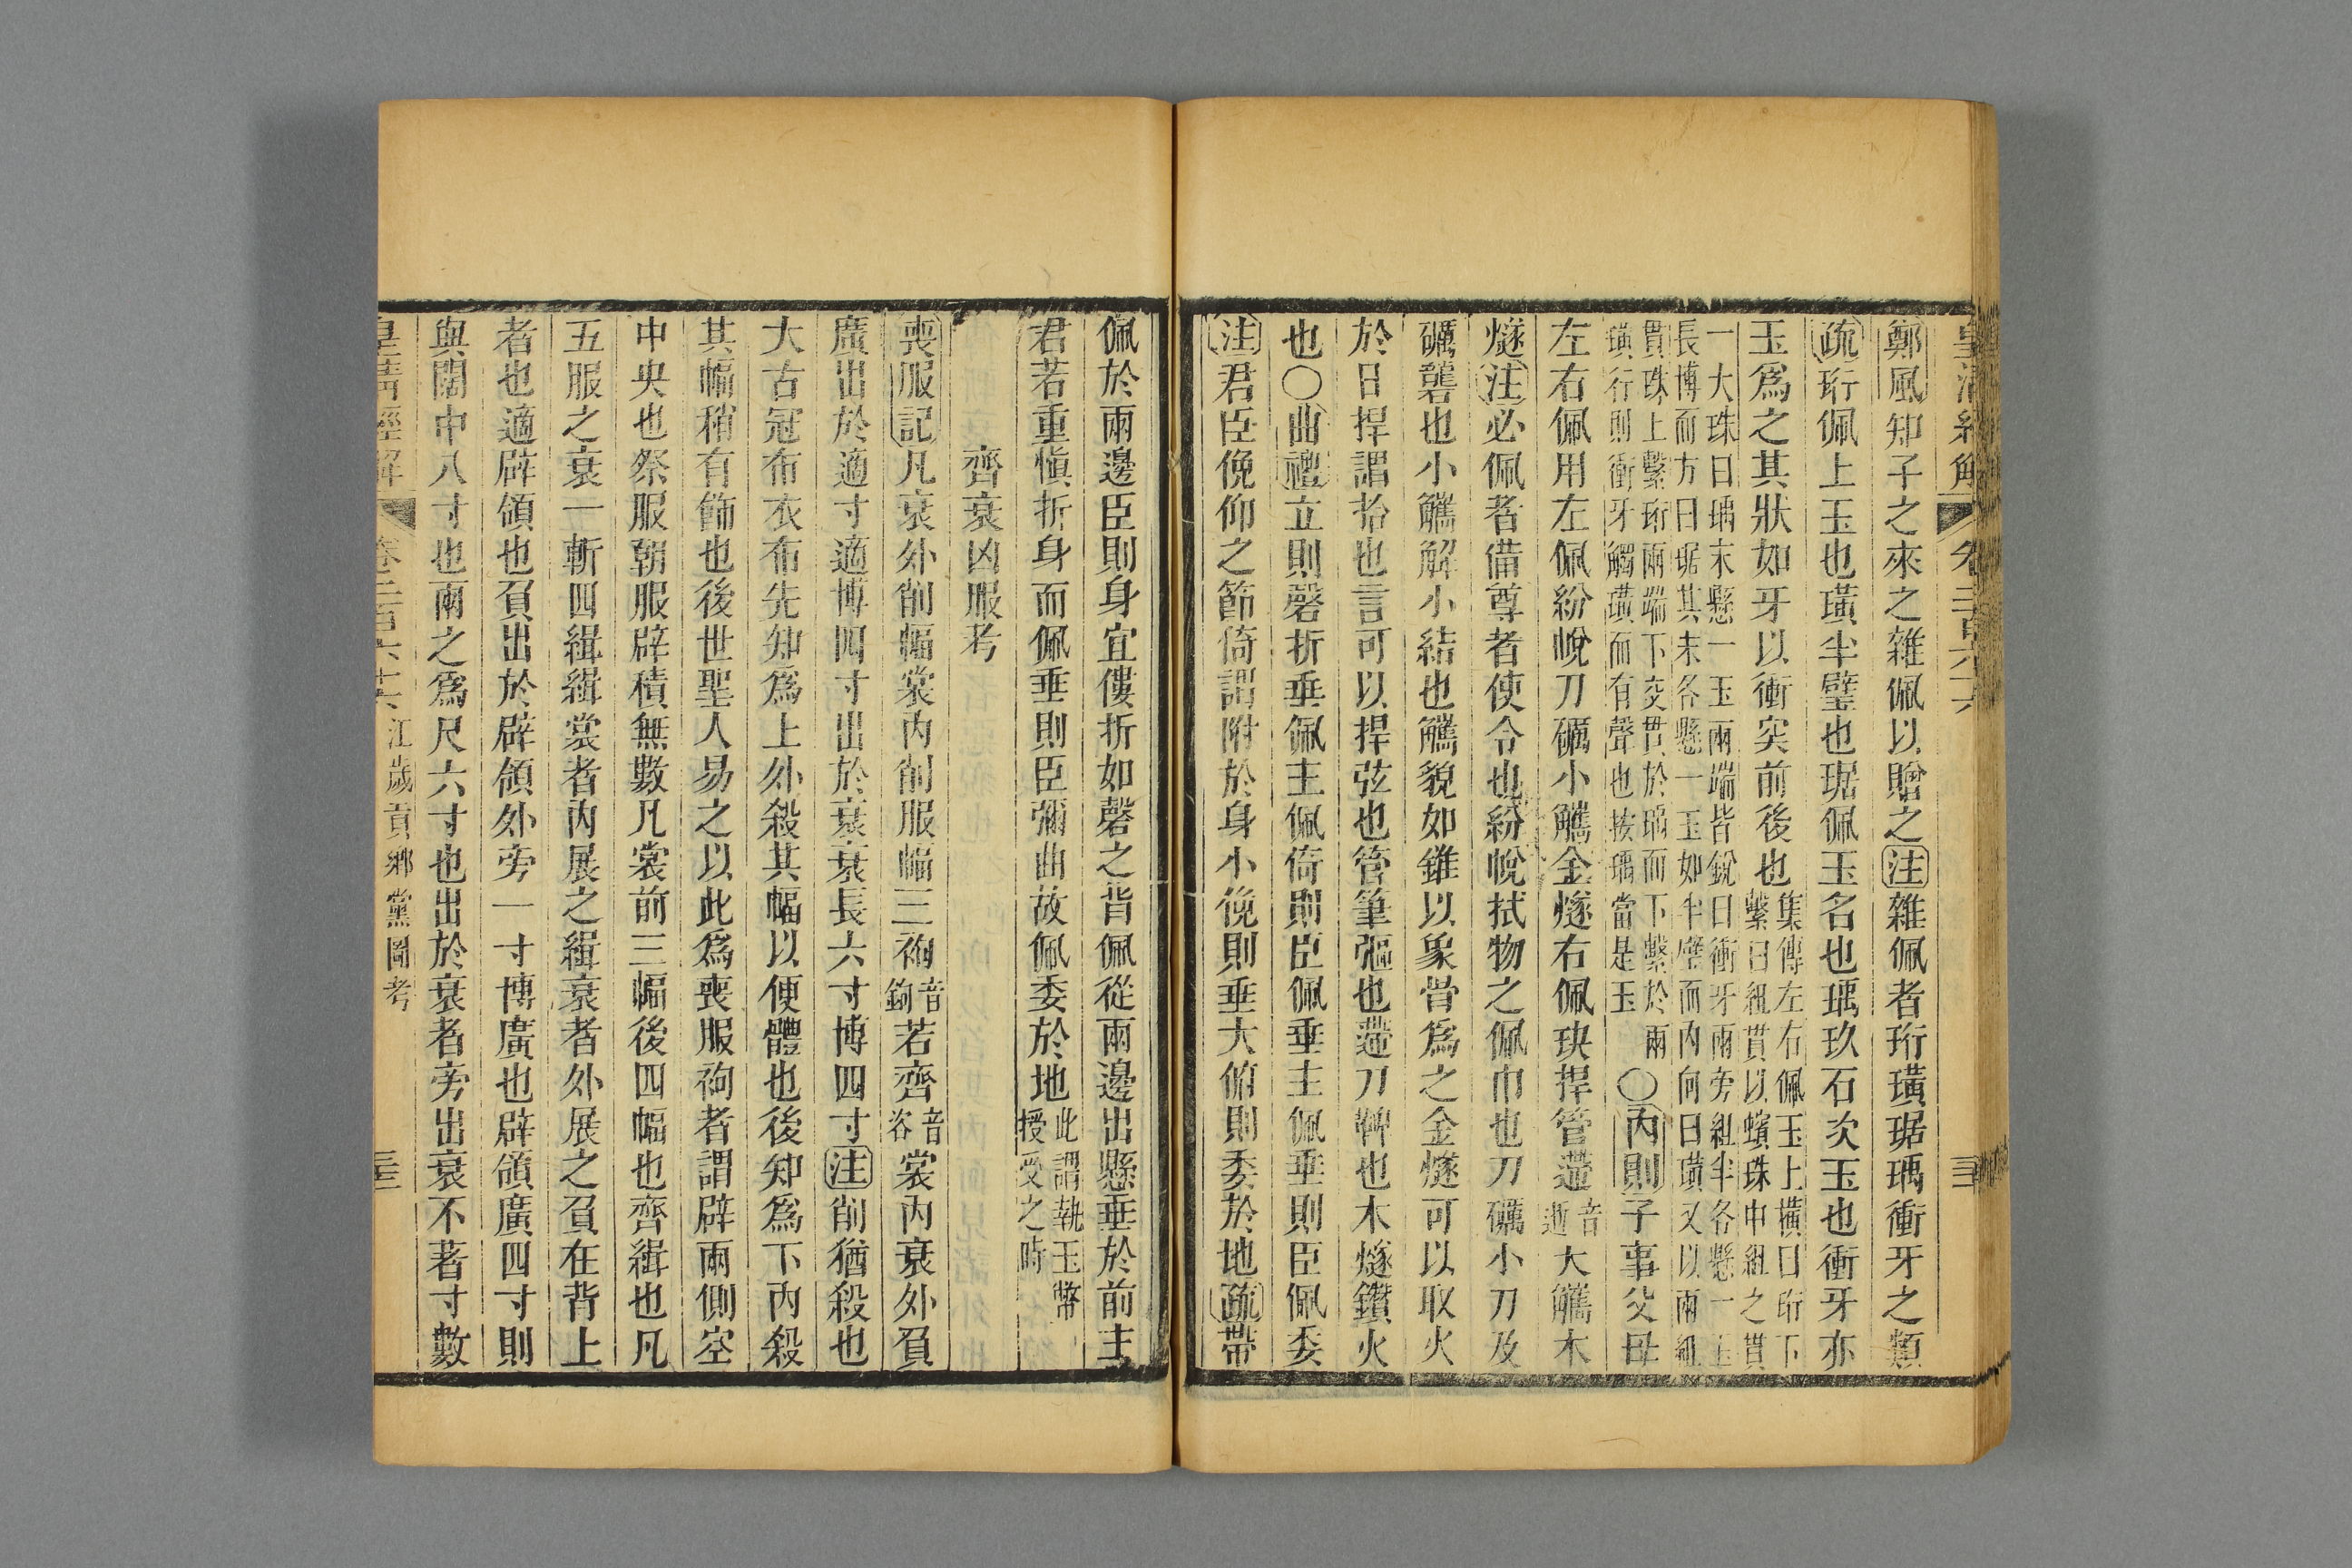 皇清經解 卷二百六十六 三十二
鄭風知子之來之雜佩以贈之注雜佩者珩璜琚瑀衝牙之類
疏珩佩上玉也璜半璧也琚佩玉名也瑀玖石次玉也衝牙亦
玉爲之其狀如牙以衝突前後也集傳左右佩玉上橫曰珩下繫曰組貫以蠙珠中組之貫
一大珠曰瑀末懸一玉兩端皆銳曰衝牙兩旁組半各懸一玉長博而方曰琚其末各懸一玉如半璧而內向曰璜又以兩組
貫珠上繫珩兩端下交貫於瑀而下繫於兩璜行則衝牙觸璜而有聲也按瑀當是玉〇內則子事父母
左右佩用左佩紛帨刀礪小觿金燧右佩玦捍管遰音逝大觿木
燧注必佩者備尊者使令也紛帨拭物之佩巾也刀礪小刀及
礪礱也小觿解小結也觿貌如錐以象骨爲之金燧可以取火
於日捍謂拾也言可以捍弦也管筆彄也遰刀鞞也木燧鑽火
也〇曲禮立則磬折垂佩主佩倚則臣佩垂主佩垂則臣佩委
注君臣俛仰之節倚謂附於身小俛則垂大俯則委於地疏帶
佩於兩邊臣則身宜僂折如磬之背佩從兩邊出懸垂於前主
君若重愼折身而佩垂則臣彌曲故佩委於地此謂執玉幣授受之時
齊衰凶服考
喪服記凡衰外削幅裳內削服幅三袧音鉤若齊音咨裳內衰外負
廣出於適寸適博四寸出於衰衰長六寸博四寸注削猶殺也
大古冠布衣布先知爲上外殺其幅以便體也後知爲下內殺
其幅稍有飾也後世聖人易之以此爲喪服袧者謂辟兩側空
中央也祭服朝服辟積無數凡裳前三幅後四幅也齊緝也凡
五服之衰一斬四緝緝裳者內展之緝衰者外展之負在背上
者也適辟領也負出於辟領外旁一寸博廣也辟領廣四寸則
與闊中八寸也兩之爲尺六寸也出於衰者旁出衰不著寸數
皇清經解 卷二百六十六 江歲貢鄉黨圖考 三十二